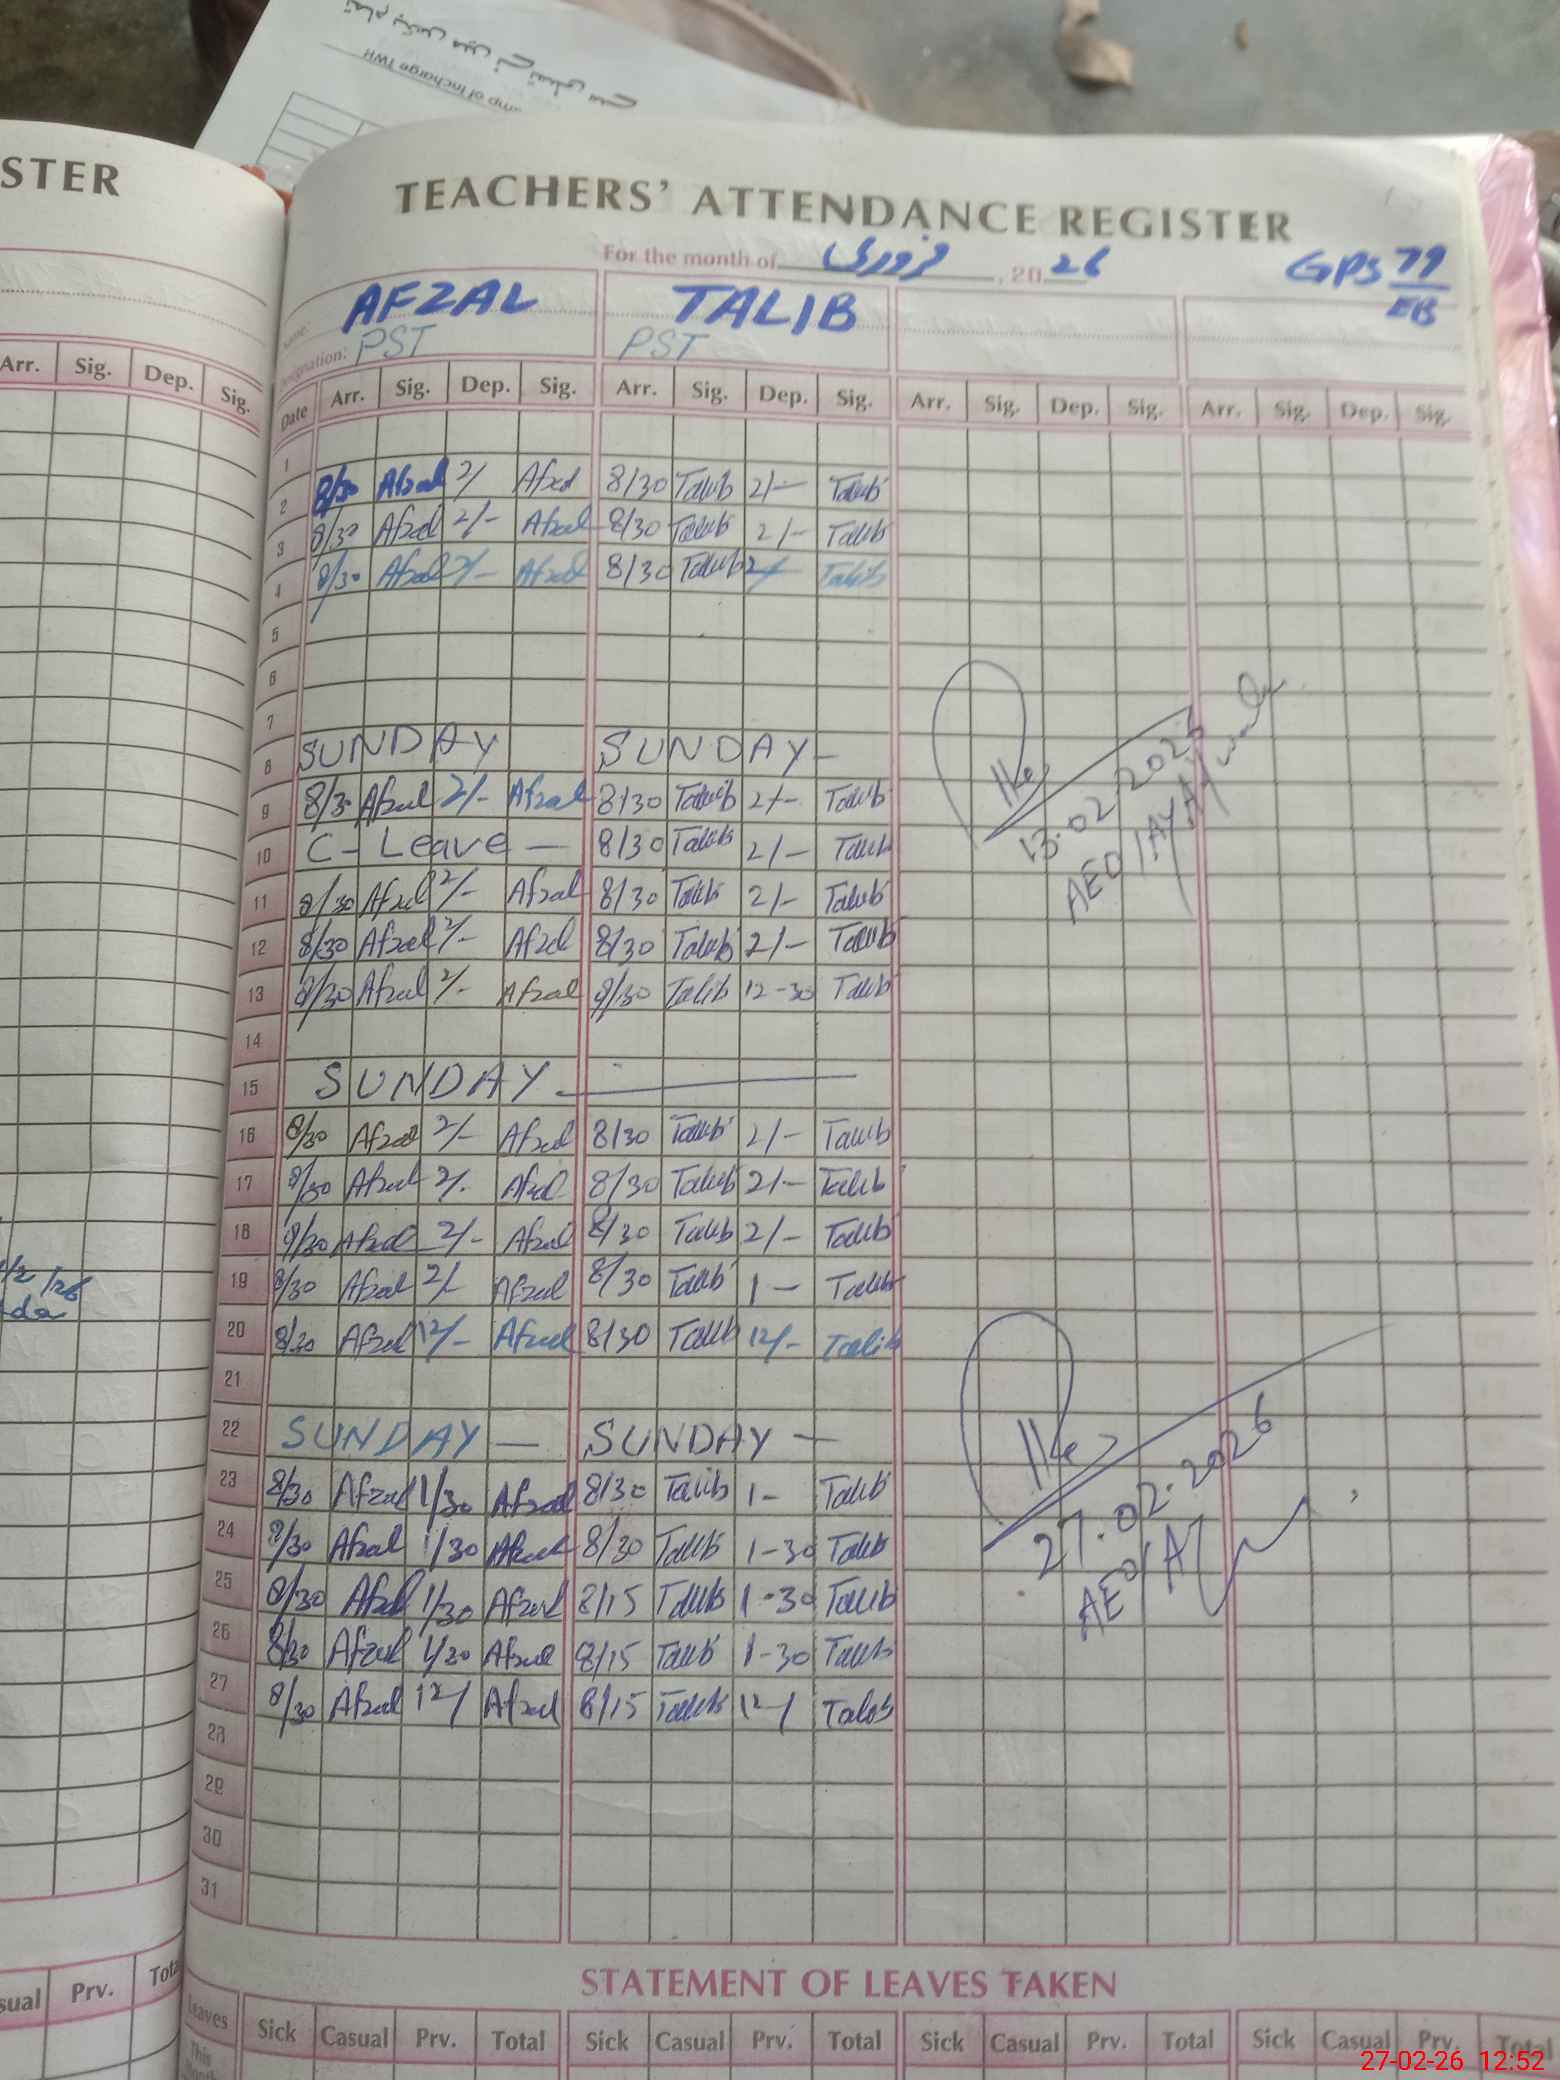 تمام
Stamp of Incharge TWH
STER
TEACHERS' ATTENDANCE REGISTER
For the month of فروری, 20 26
GPS 79/EB
Name: AFZAL TALIB
Designation: PST PST
Arr. Sig. Dep. Sig.
Date Arr. Sig. Dep. Sig. Arr. Sig. Dep. Sig. Arr. Sig. Dep. Sig. Arr. Sig. Dep. Sig.
1
2 8/30 Afzal 2/ Afzal 8/30 Talib 2/- Talib
3 8/30 Afzal 2/- Afzal 8/30 Talib 2/- Talib
4 8/30 Afzal 2/- Afzal 8/30 Talib 2/- Talib
5
6
7
8 SUNDAY SUNDAY-
9 8/30 Afzal 2/- Afzal 8/30 Talib 2/- Talib
10 C-Leave - 8/30 Talib 2/- Talib
11 8/30 Afzal 2/- Afzal 8/30 Talib 2/- Talib
12 8/30 Afzal 2/- Afzal 8/30 Talib 2/- Talib
13 8/30 Afzal 2/- Afzal 8/30 Talib 12-30 Talib
14
15 SUNDAY
16 8/30 Afzal 2/- Afzal 8/30 Talib 2/- Talib
17 8/30 Afzal 2/. Afzal 8/30 Talib 2/- Talib
18 8/30 Afzal 2/- Afzal 8/30 Talib 2/- Talib
19 8/30 Afzal 2/- Afzal 8/30 Talib 1- Talib
20 8/30 Afzal 12/- Afzal 8/30 Talib 12/- Talib
21
22 SUNDAY - SUNDAY -
23 8/30 Afzal 1/30 Afzal 8/30 Talib 1- Talib
24 8/30 Afzal 1/30 Afzal 8/30 Talib 1-30 Talib
25 8/30 Afzal 1/30 Afzal 8/15 Talib 1-30 Talib
26 8/30 Afzal 1/30 Afzal 8/15 Talib 1-30 Talib
27 8/30 Afzal 12/ Afzal 8/15 Talib 12/ Talib
28
29
30
31
13.02.2026
AEO
27.02.2026
AEO
STATEMENT OF LEAVES TAKEN
sual Prv. Tota
Leaves Sick Casual Prv. Total Sick Casual Prv. Total Sick Casual Prv. Total Sick Casual Prv. Total
This
Month
27-02-26 12:52